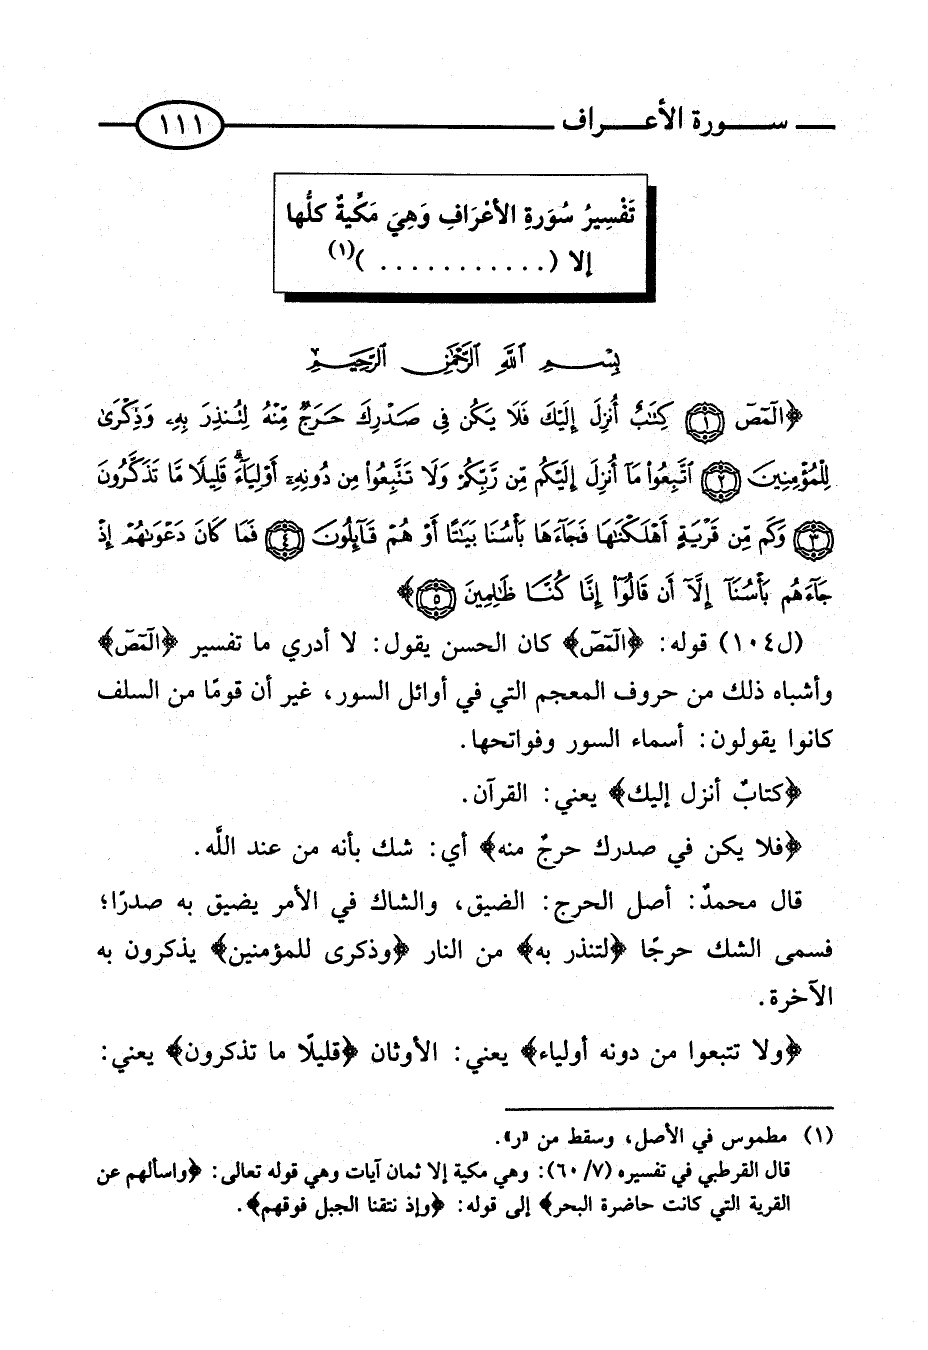 سورة الأعراف ١١١
تَفْسِيرُ سُورَةِ الأعْرَافِ وَهِيَ مَكِّيةٌ كلُّها
إلا (. . . . . . . . . . . )(١)
بِسْمِ ٱللَّهِ ٱلرَّحْمَٰنِ ٱلرَّحِيمِ
﴿الٓمٓصٓ ١ كِتَٰبٌ أُنزِلَ إِلَيْكَ فَلَا يَكُن فِى صَدْرِكَ حَرَجٌ مِّنْهُ لِتُنذِرَ بِهِۦ وَذِكْرَىٰ
لِلْمُؤْمِنِينَ ٢ ٱتَّبِعُوا۟ مَآ أُنزِلَ إِلَيْكُم مِّن رَّبِّكُمْ وَلَا تَتَّبِعُوا۟ مِن دُونِهِۦٓ أَوْلِيَآءَۗ قَلِيلًا مَّا تَذَكَّرُونَ
٣ وَكَم مِّن قَرْيَةٍ أَهْلَكْنَٰهَا فَجَآءَهَا بَأْسُنَا بَيَٰتًا أَوْ هُمْ قَآئِلُونَ ٤ فَمَا كَانَ دَعْوَىٰهُمْ إِذْ
جَآءَهُم بَأْسُنَآ إِلَّآ أَن قَالُوٓا۟ إِنَّا كُنَّا ظَٰلِمِينَ ٥﴾
(ل١٠٤) قوله: ﴿الٓمٓصٓ﴾ كان الحسن يقول: لا أدري ما تفسير ﴿الٓمٓصٓ﴾
وأشباه ذلك من حروف المعجم التي في أوائل السور، غير أن قومًا من السلف
كانوا يقولون: أسماء السور وفواتحها.
﴿كتابٌ أنزل إليك﴾ يعني: القرآن.
﴿فلا يكن في صدرك حرجٌ منه﴾ أي: شك بأنه من عند اللَّه.
قال محمدٌ: أصل الحرج: الضيق، والشاك في الأمر يضيق به صدرًا؛
فسمى الشك حرجًا ﴿لتنذر به﴾ من النار ﴿وذكرى للمؤمنين﴾ يذكرون به
الآخرة.
﴿ولا تتبعوا من دونه أولياء﴾ يعني: الأوثان ﴿قليلًا ما تذكرون﴾ يعني:
(١) مطموس في الأصل، وسقط من «ر».
قال القرطبي في تفسيره (٧/ ٦٠): وهي مكية إلا ثمان آيات وهي قوله تعالى: ﴿واسألهم عن
القرية التي كانت حاضرة البحر﴾ إلى قوله: ﴿وإذ نتقنا الجبل فوقهم﴾.